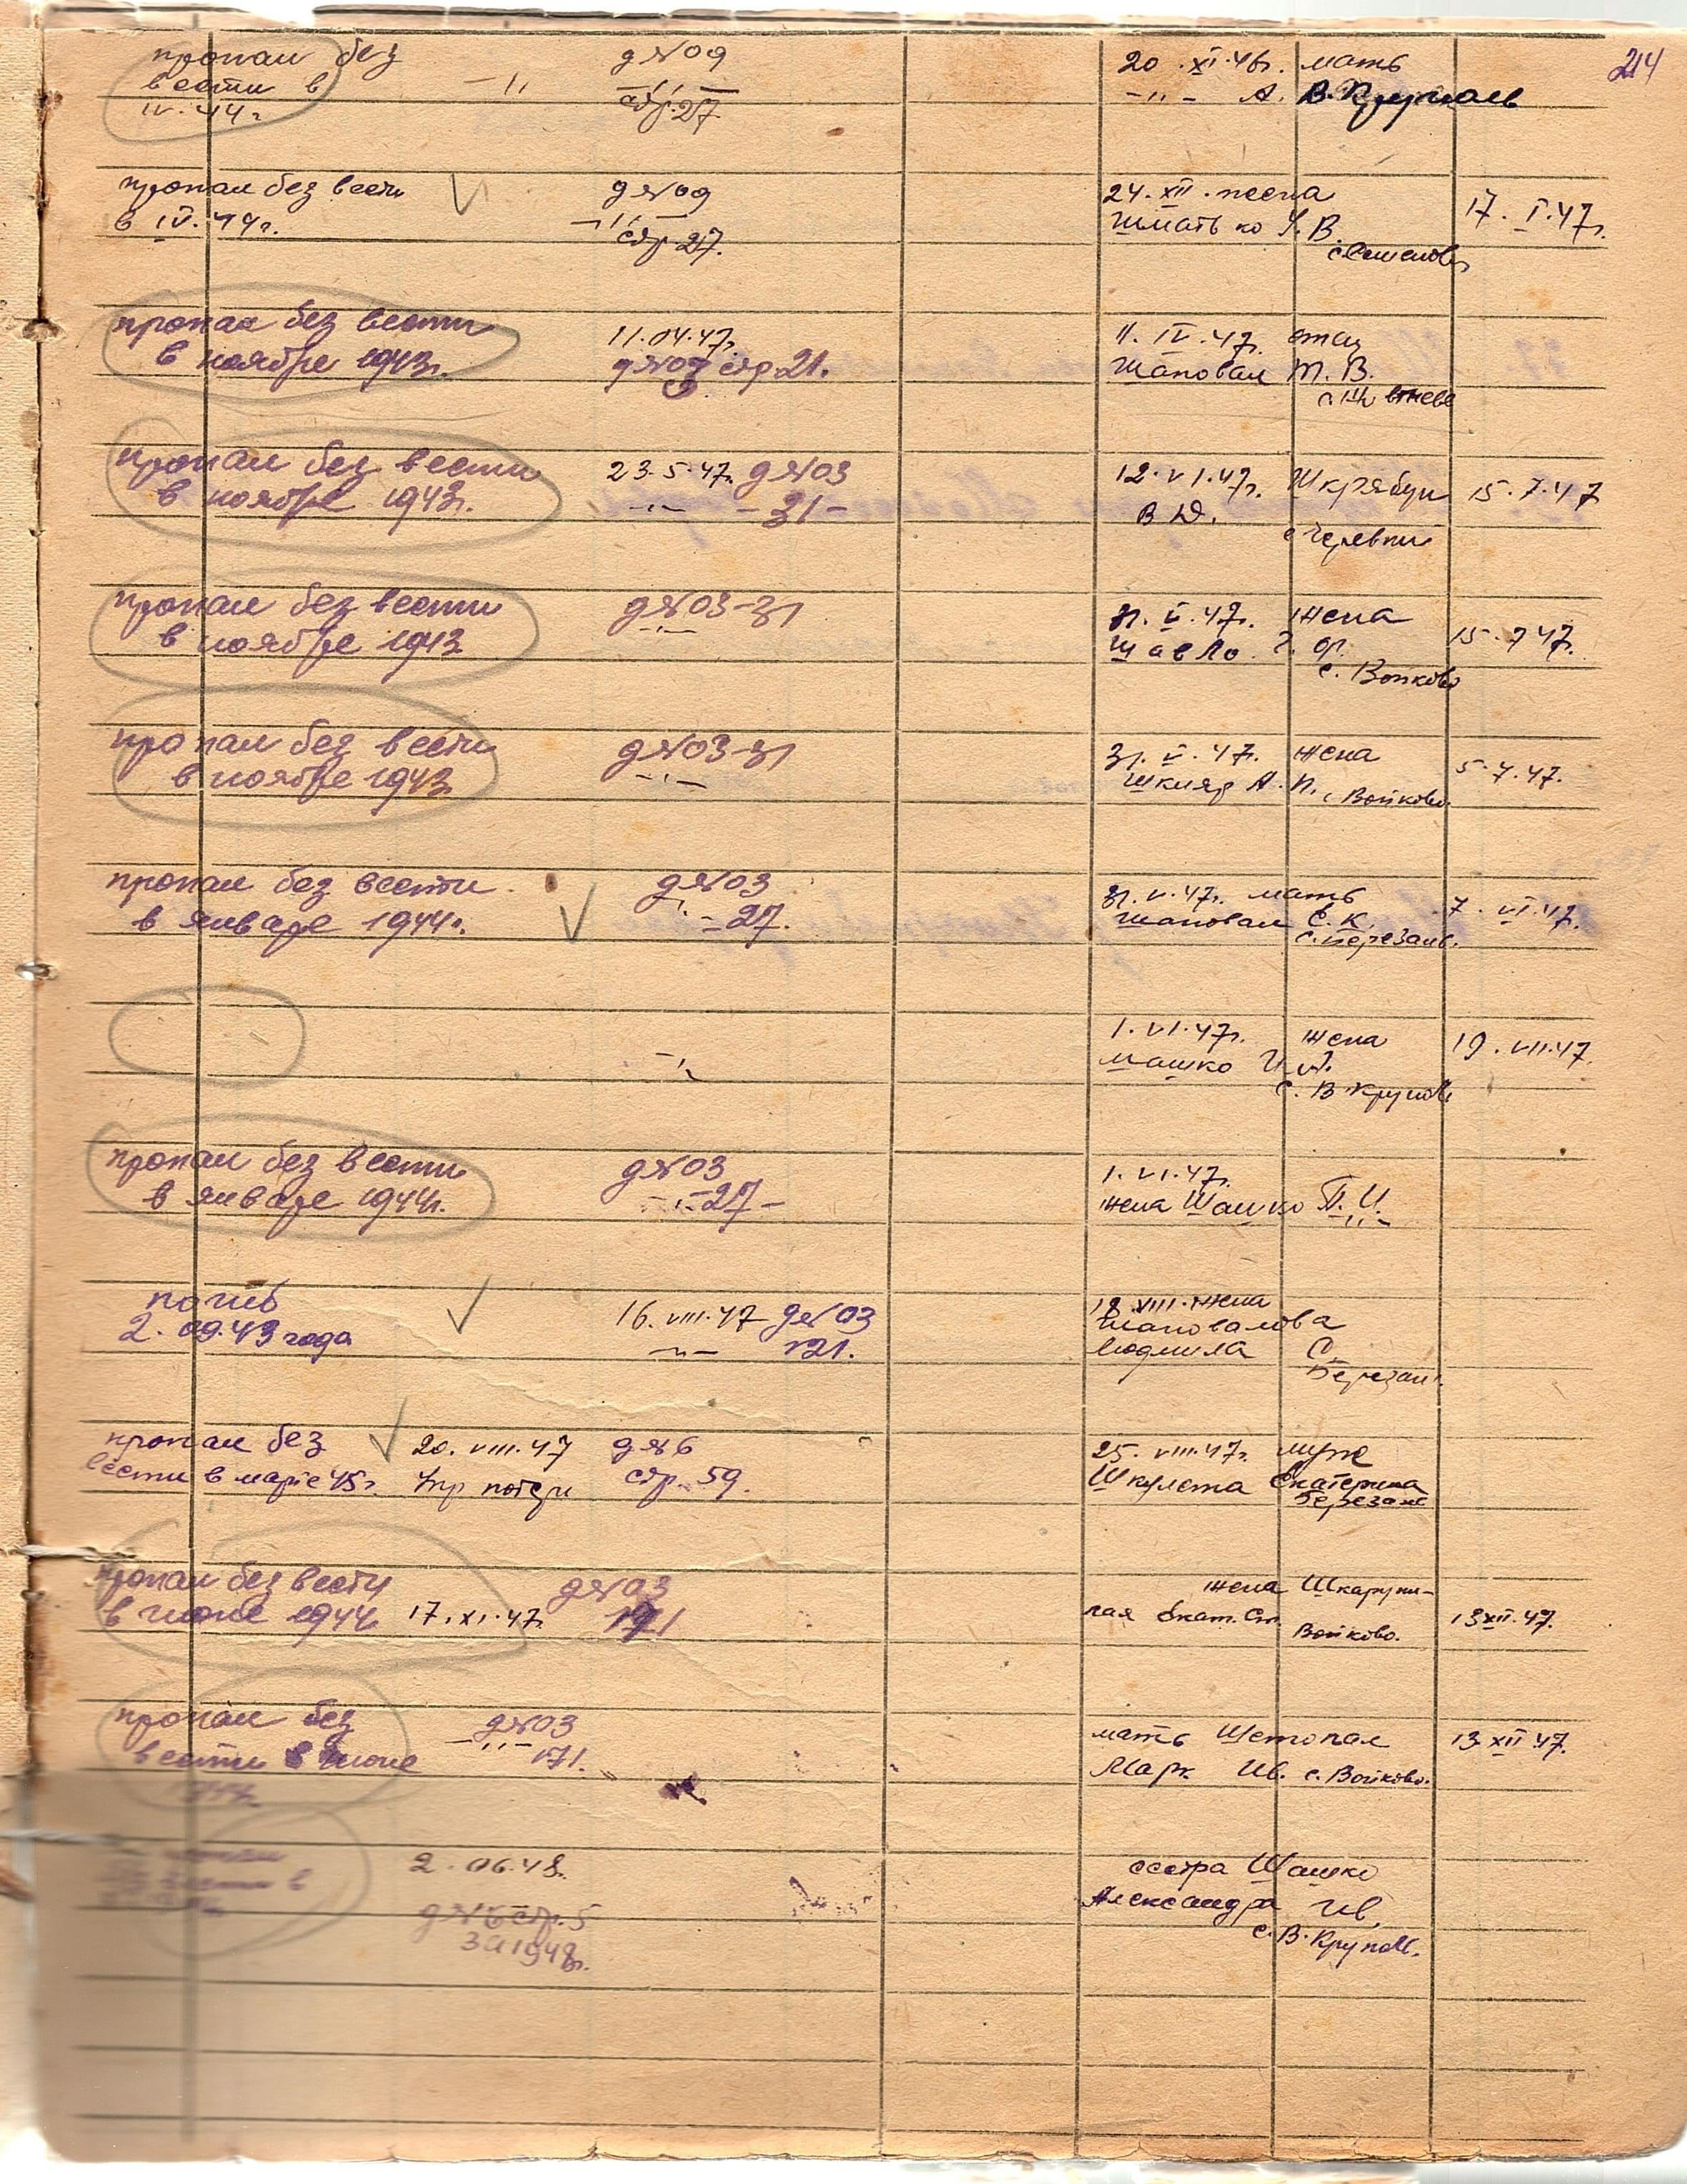 214
пропал без
вести в
IV. 44 г
—„
д №09
—„—
стр. 27
20. XI. 46г. мать
—„— А. В.
пропал без вести
в IV. 44г.
д №09
—„—
стр 27.
24. XII.
Шматько У. В
17. I. 47г.
пропал без вести
в ноябре 1943г.
11. 04. 47г.
д №03 стр. 21.
11. IV. 47г. отец
Шаповал Т. В.
пропал без вести
в ноябре 1943г.
23. 5. 47г. д №03
—„— —31—
12. VI. 47г. Шкрябун
В Д.
15. 7. 47
пропал без вести
в ноябре 1943
д №03-31
—„—
31. V. 47г. жена
Шавло
с. Войково
15. 7 47г.
пропал без вести
в ноябре 1943
д №03-31
—„—
31. V. 47г. жена
Шкляр А. П. с Войково.
5. 7. 47.
пропал без вести
в январе 1944г.
д №03
„ —27.
31. V. 47г. мать
Шаповал С. К.
с. Березань.
7. VI. 47г.
—„
1. VI. 47г. жена
Машко И. А.
с. В Круполь
19. VII. 47
пропал без вести
в январе 1944г.
д №03
—„—27—
1. VI. 47г.
жена Шашко П. И.
—„—
погиб
2. 09. 43 года
16. VIII. 47 д №03
—„— 121.
18. VIII. жена
Шаповалова
Людмила С.
Березань.
пропал без
вести в марте 45г.
20. VIII. 47 д №6
Упр потерь стр. 59.
25. VIII. 47г. муж
Шкулета Екатерина
Березань
пропал без вести
в июне 1944 17. XI. 47г.
д №03
171
жена Шкарупи-
лая Екат. Ст.
Войково.
13 XII. 47.
пропал без
вести в июне
1944г.
д №03
—„— 171.
мать Шетопал
Мар. Ив. с. Войково.
13 XII 47.
2. 06. 48г.
д №6 стр. 5
за 1948г.
сестра Шашко
Александра Ив.
с. В. Круполь.